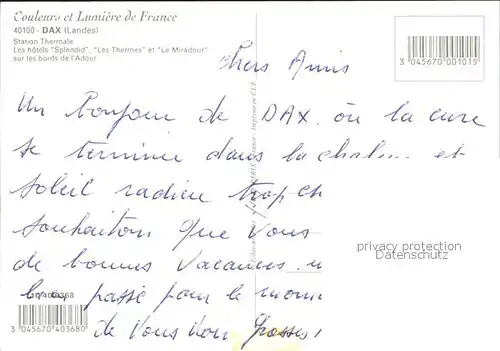 Couleurs et Lumière de France
40100 - DAX (Landes)
Station Thermale
Les hôtels "Splendid", "Les Thermes" et "Le Miradour"
sur les bords de l'Adour
3 045670 001015
Chers Amis
Un Bonjour de DAX où la cure
se termine dans la chal... et
soleil radieu trop ch
souhaitons que Vous
de bonnes vacances
passé pour le
3 045670 403680
de Vous Bon Grosses
privacy protection
Datenschutz